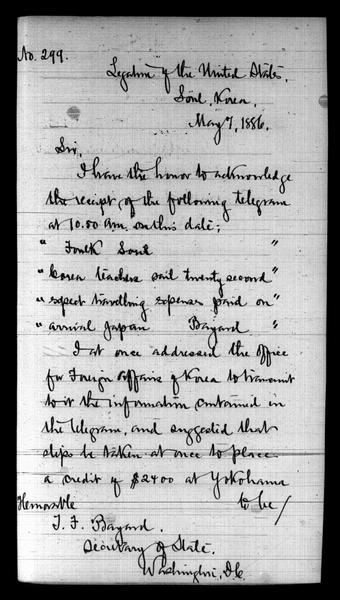 No. 299.
Legation of the United States,
Söul, Korea,
May 7, 1886.
Sir,
I have the honor to acknowledge
the receipt, of the following telegram
at 10.00 a.m. on this date;
" Foulk Soul "
" Corea teachers sail twenty second "
" expect travelling expenses paid on "
" arrival Japan Bayard "
I at once addressed the Office
for Foreign Affairs of Korea to transmit
to it the information contained in
the telegram, and suggested that
steps be taken at once to place
a credit of $2400 at Yokohama
to be/
Honorable
T. F. Bayard.
Secretary of State.
Washington, D.C.